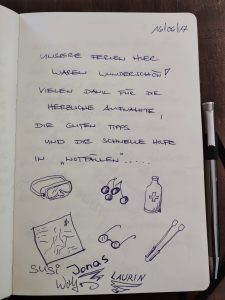 16/06/17
UNSERE FERIEN HIER
WAREN WUNDERSCHÖN!
VIELEN DANK FÜR DIE
HERZLICHE AUFNAHME,
DIE GUTEN TIPPS
UND DIE SCHNELLE HILFE
IN „NOTFÄLLEN".....
SUSI Jonas
Wolf LAURIN